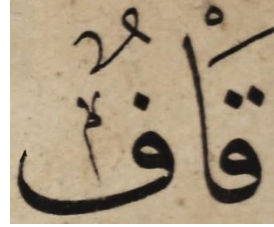 قَافٌ